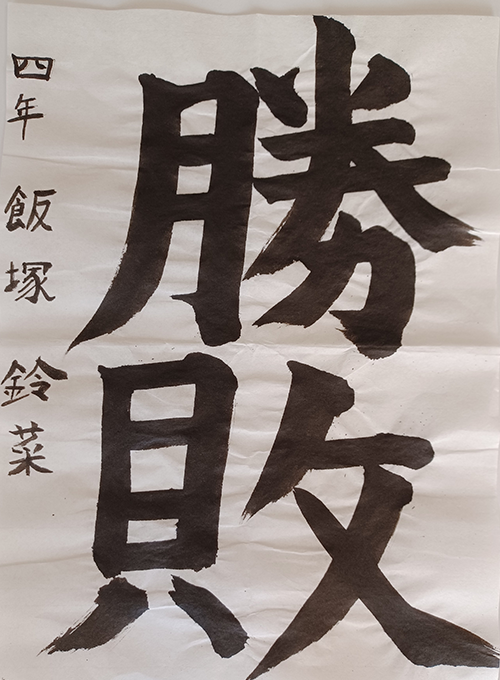 勝敗
四年 飯塚 鈴菜